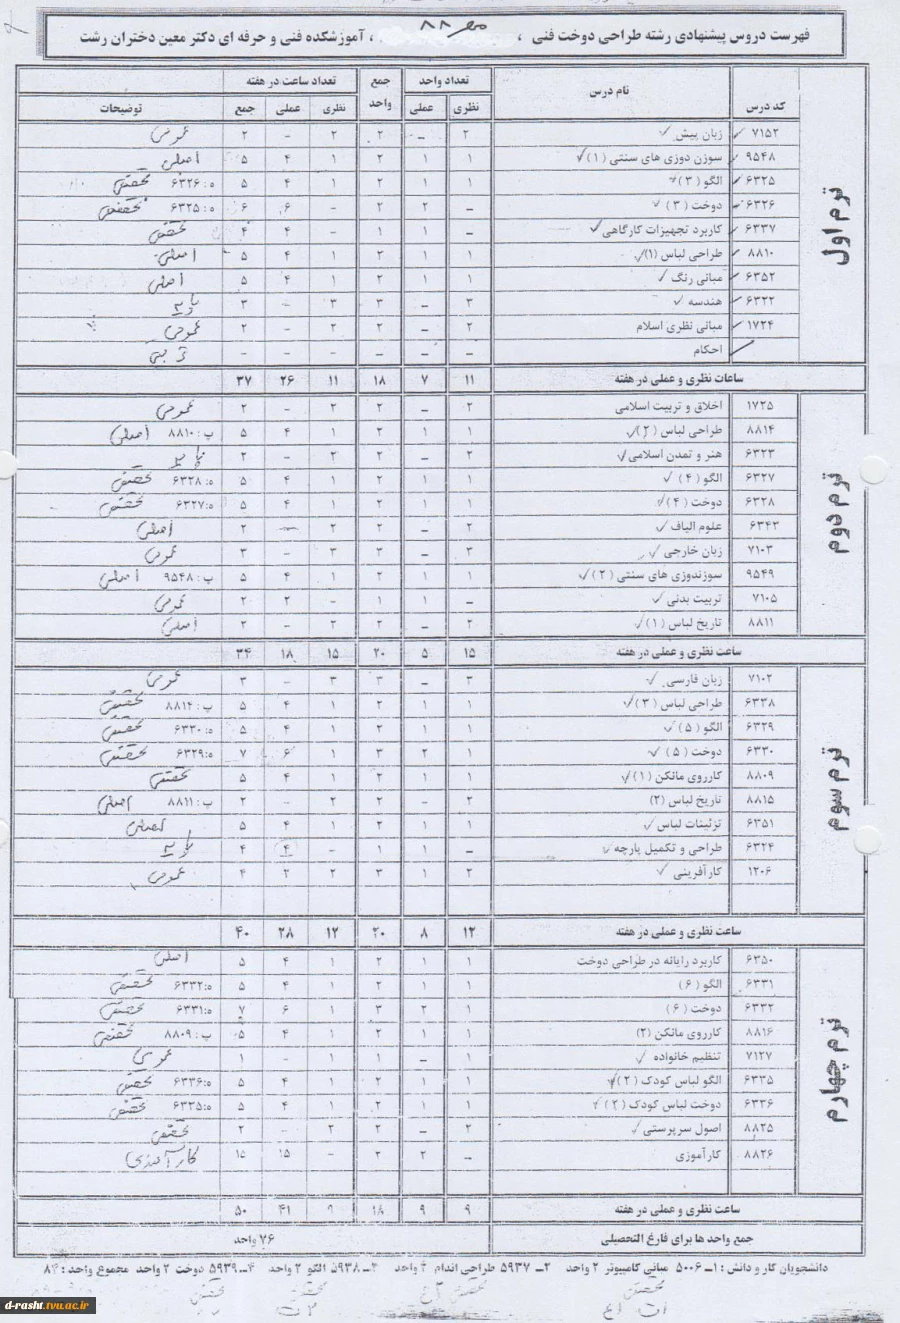 فهرست دروس پیشنهادی رشته طراحی دوخت فنی ، مهر ۸۸ ، آموزشکده فنی و حرفه ای دکتر معین دختران رشت
کد درس نام درس تعداد واحد جمع واحد تعداد ساعت در هفته توضیحات
نظری عملی نظری عملی جمع
ترم اول
۷۱۵۲ زبان پیش ۲ – ۲ ۲ – ۲ عمومی
۹۵۴۸ سوزن دوزی های سنتی (۱) ۱ ۱ ۲ ۱ ۴ ۵ اصلی
۶۳۲۵ الگو (۳) ۱ ۱ ۲ ۱ ۴ ۵ ه:۶۳۲۶ تخصصی
۶۳۲۶ دوخت (۳) – ۲ ۲ – ۶ ۶ ه:۶۳۲۵ تخصصی
۶۳۳۷ کاربرد تجهیزات کارگاهی – ۱ ۱ – ۴ ۴ تخصصی
۸۸۱۰ طراحی لباس (۱) ۱ ۱ ۲ ۱ ۴ ۵ اصلی
۶۳۵۲ مبانی رنگ ۱ ۱ ۲ ۱ ۴ ۵ اصلی
۶۳۲۲ هندسه ۳ – ۳ ۳ – ۳ پایه
۱۷۲۴ مبانی نظری اسلام ۲ – ۲ ۲ – ۲ عمومی
احکام – – – – – –
ساعات نظری و عملی در هفته ۱۱ ۷ ۱۸ ۱۱ ۲۶ ۳۷
ترم دوم
۱۷۲۵ اخلاق و تربیت اسلامی ۲ – ۲ ۲ – ۲ عمومی
۸۸۱۴ طراحی لباس (۲) ۱ ۱ ۲ ۱ ۴ ۵ پ:۸۸۱۰ اصلی
۶۳۲۳ هنر و تمدن اسلامی ۲ – ۲ ۲ – ۲ پایه
۶۳۲۷ الگو (۴) ۱ ۱ ۲ ۱ ۴ ۵ ه:۶۳۲۸ تخصصی
۶۳۲۸ دوخت (۴) ۱ ۱ ۲ ۱ ۴ ۵ ه:۶۳۲۷ تخصصی
۶۳۴۳ علوم الیاف ۲ – ۲ ۲ – ۲ اصلی
۷۱۰۳ زبان خارجی ۳ – ۳ ۳ – ۳ عمومی
۹۵۴۹ سوزندوزی های سنتی (۲) ۱ ۱ ۲ ۱ ۴ ۵ پ:۹۵۴۸ اصلی
۷۱۰۵ تربیت بدنی – ۱ ۱ – ۲ ۲ عمومی
۸۸۱۱ تاریخ لباس (۱) ۲ – ۲ ۲ – ۲ اصلی
ساعت نظری و عملی در هفته ۱۵ ۵ ۲۰ ۱۵ ۱۸ ۳۴
ترم سوم
۷۱۰۲ زبان فارسی ۳ – ۳ ۳ – ۳ عمومی
۶۳۳۸ طراحی لباس (۳) ۱ ۱ ۲ ۱ ۴ ۵ پ:۸۸۱۴ تخصصی
۶۳۲۹ الگو (۵) ۱ ۱ ۲ ۱ ۴ ۵ ه:۶۳۳۰ تخصصی
۶۳۳۰ دوخت (۵) ۱ ۲ ۳ ۱ ۶ ۷ ه:۶۳۲۹ تخصصی
۸۸۰۹ کارروی مانکن (۱) ۱ ۱ ۲ ۱ ۴ ۵ تخصصی
۸۸۱۵ تاریخ لباس (۲) ۲ – ۲ ۲ – ۲ پ:۸۸۱۱ اصلی
۶۳۵۱ تزئینات لباس ۱ ۱ ۲ ۱ ۴ ۵ اصلی
۶۳۲۴ طراحی و تکمیل پارچه – ۱ ۱ – ۴ ۴ پایه
۱۲۰۶ کارآفرینی ۲ ۱ ۳ ۲ ۲ ۴ عمومی
ساعت نظری و عملی در هفته ۱۲ ۸ ۲۰ ۱۲ ۲۸ ۴۰
ترم چهارم
۶۳۵۰ کاربرد رایانه در طراحی دوخت ۱ ۱ ۲ ۱ ۴ ۵ اصلی
۶۳۳۱ الگو (۶) ۱ ۱ ۲ ۱ ۴ ۵ ه:۶۳۳۲ تخصصی
۶۳۳۲ دوخت (۶) ۱ ۲ ۳ ۱ ۶ ۷ ه:۶۳۳۱ تخصصی
۸۸۱۶ کارروی مانکن (۲) ۱ ۱ ۲ ۱ ۴ ۵ پ:۸۸۰۹ تخصصی
۷۱۲۷ تنظیم خانواده ۱ – ۱ ۱ – ۱ عمومی
۶۳۳۵ الگو لباس کودک (۲) ۱ ۱ ۲ ۱ ۴ ۵ ه:۶۳۳۶ تخصصی
۶۳۳۶ دوخت لباس کودک (۲) ۱ ۱ ۲ ۱ ۴ ۵ ه:۶۳۳۵ تخصصی
۸۸۲۵ اصول سرپرستی ۲ – ۲ ۲ – ۲ تخصصی
۸۸۲۶ کارآموزی – ۲ ۲ – ۱۵ ۱۵ کارآموزی
ساعت نظری و عملی در هفته ۹ ۹ ۱۸ ۹ ۴۱ ۵۰
جمع واحد ها برای فارغ التحصیلی ۷۶ واحد
دانشجویان کار و دانش : ۱ـ ۵۰۰۶ مبانی کامپیوتر ۲ واحد ۲ـ ۵۹۳۷ طراحی اندام ۲ واحد ۳ـ ۵۹۳۸ الگو ۲ واحد ۴ـ ۵۹۳۹ دوخت ۲ واحد مجموع واحد : ۸۴
d-rasht.tvu.ac.ir